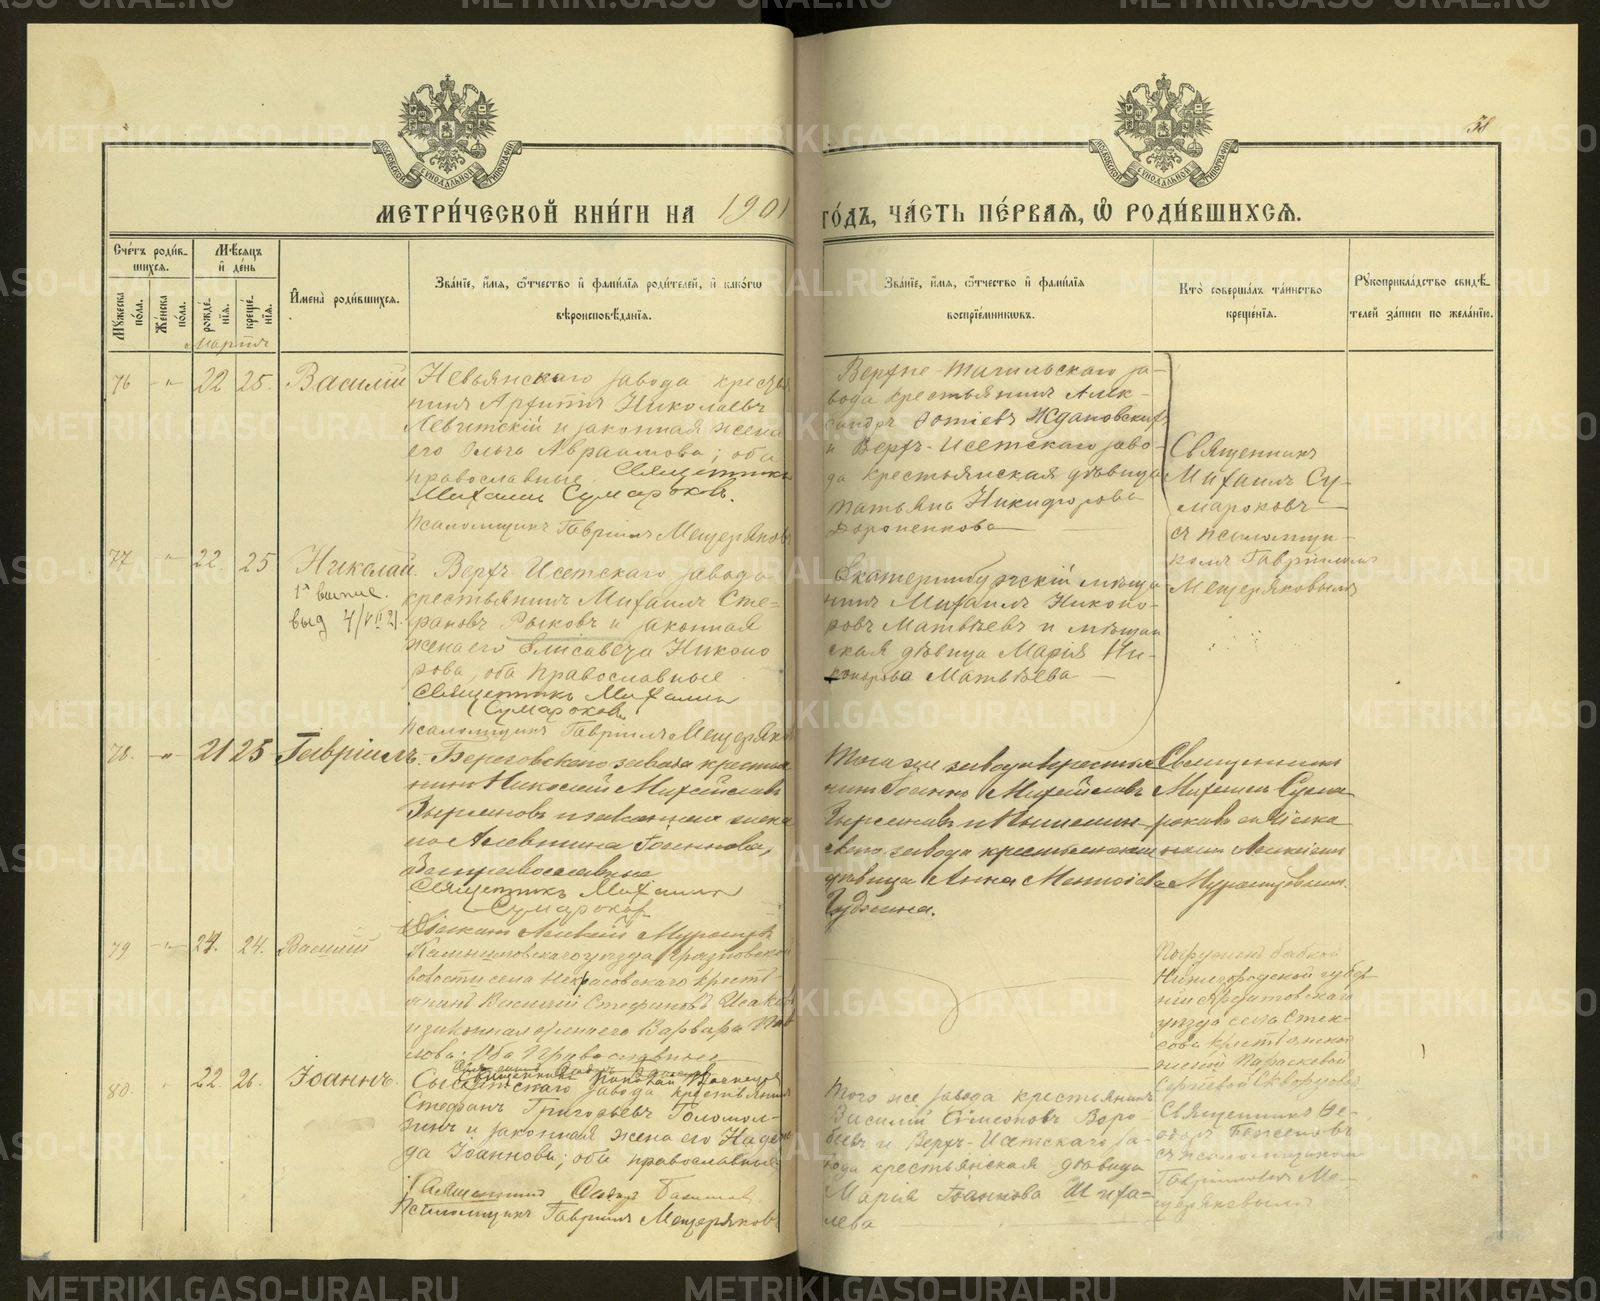 МЕТРИ́ЧЕСКОЙ КНИ́ГИ НА 1901
ГО́ДЪ, ЧА́СТЬ ПЕ́РВАѦ, Ѽ РОДИ́ВШИХСѦ.
38
МОСКОВСКОЙ СѴНОДАЛЬНОЙ ТИПОГРАФІИ
МОСКОВСКОЙ СѴНОДАЛЬНОЙ ТИПОГРАФІИ
Сче́тъ роди́в-
шихсѧ.
Мꙋ́жеска по́ла.
Же́нска по́ла.
Мѣ́сѧцъ
и҆ де́нь
рожде́нїѧ.
креще́нїѧ.
И҆мена̀ роди́вшихсѧ.
Зва́нїе, и҆́мѧ, ѻ҆́тчество и҆ фами́лїѧ роди́телей, и҆ како́гѡ
вѣроисповѣ́данїѧ.
Зва́нїе, и҆́мѧ, ѻ҆́тчество и҆ фами́лїѧ
воспрїе́мникѡвъ.
Кто̀ соверша́лъ та́инство
креще́нїѧ.
Рꙋкоприкла́дство свидѣ́-
телей за́писи по жела́нїю.
Марта
76 - " - 22 25. Василій
Невьянскаго завода крестья
нинъ Архипъ Николаевъ
Левитскій и законная жена
его Ольга Авраамова; оба
православные. Священникъ
Михаилъ Сумароковъ.
Псаломщикъ Гавріилъ Мещеряковъ
Верхне-Тагильскаго за-
вода крестьянинъ Алек-
сандръ Фотіевъ Ждановскихъ
и Верхъ-Исетскаго заво-
да крестьянская дѣвица
Татьяна Никифорова
Дороненкова
Священникъ
Михаилъ Су-
мароковъ
съ псаломщи-
комъ Гавріиломъ
Мещеряковымъ
77 - " 22. 25 Николай.
1я выпис.
выд 4/VII 21.
Верхъ Исетскаго завода
крестьянинъ Михаилъ Сте-
фановъ Рыковъ и законная
жена его Елисавета Никано
рова, оба православные.
Священникъ Михаилъ
Сумароковъ
Псаломщикъ Гавріилъ Мещеряков
Екатеринбургскій мѣща
нинъ Михаилъ Никано-
ровъ Матвѣевъ и мѣщан
ская дѣвица Марія Ни-
канорова Матвѣева
78. - " - 21 25 Гавріилъ.
Березовскаго завода крестья
нинъ Николай Михайловъ
Зырянов и законная жена
его Алевтина Іоаннова,
оба православные
Священникъ Михаилъ
Сумароковъ
Діаконъ Алексій Мурашовъ
Того же завода крестья
нинъ Іоаннъ Михайловъ
Зырянов и Пышмин-
скаго завода крестьянская
дѣвица Анна
Священникъ
Михаилъ Сума
роковъ съ діако
номъ Алексіемъ
79 - " - 24. 24. Василій
уѣзда
волости села Некрасовскаго крестья
нинъ Василій Стефановъ Исаковъ
и законная жена его Варвара Пав
лова. Оба Православные
Погруженъ бабкой
Нижегородской губер
ніи Ардатовскаго
уѣзда села Стек-
сова крестьянской
женой Параскевой
Сергіевой Скворцовой
80. " 22. 26. Іоаннъ.
Сысертскаго завода крестьянинъ
Стефанъ Григорьевъ Голомол-
зинъ и законная жена его Надеж
да Іоаннова; оба православные
Священникъ Феодоръ
Псаломщикъ Гавріилъ Мещеряковъ
Того же завода крестьянинъ
Василій Симеоновъ Воро-
бьевъ и Верхъ-Исетскаго за-
вода крестьянская дѣвица
Марія Іоаннова Шиха-
лева
Священникъ Ѳе-
одоръ
съ псаломщикомъ
Гавріиломъ Ме-
щеряковымъ
METRIKI.GASO-URAL.RU